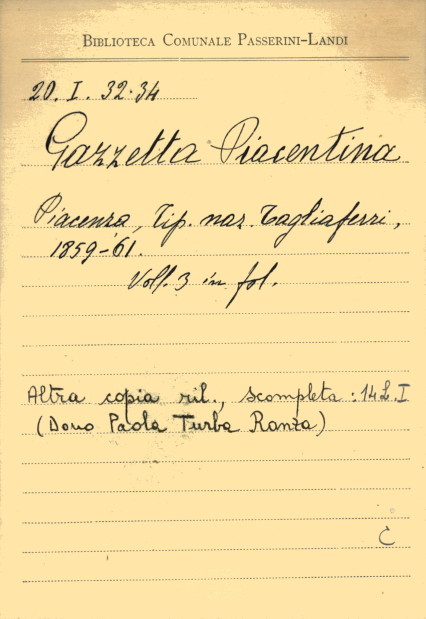 BIBLIOTECA COMUNALE PASSERINI-LANDI
20. I. 32-34
Gazzetta Piacentina
Piacenza, Tip. naz. Tagliaferri,
1859-61.
Voll. 3 in fol.
Altra copia ril., scompleta: 14 L. I
(Dono Paola Turba Ranza)
C